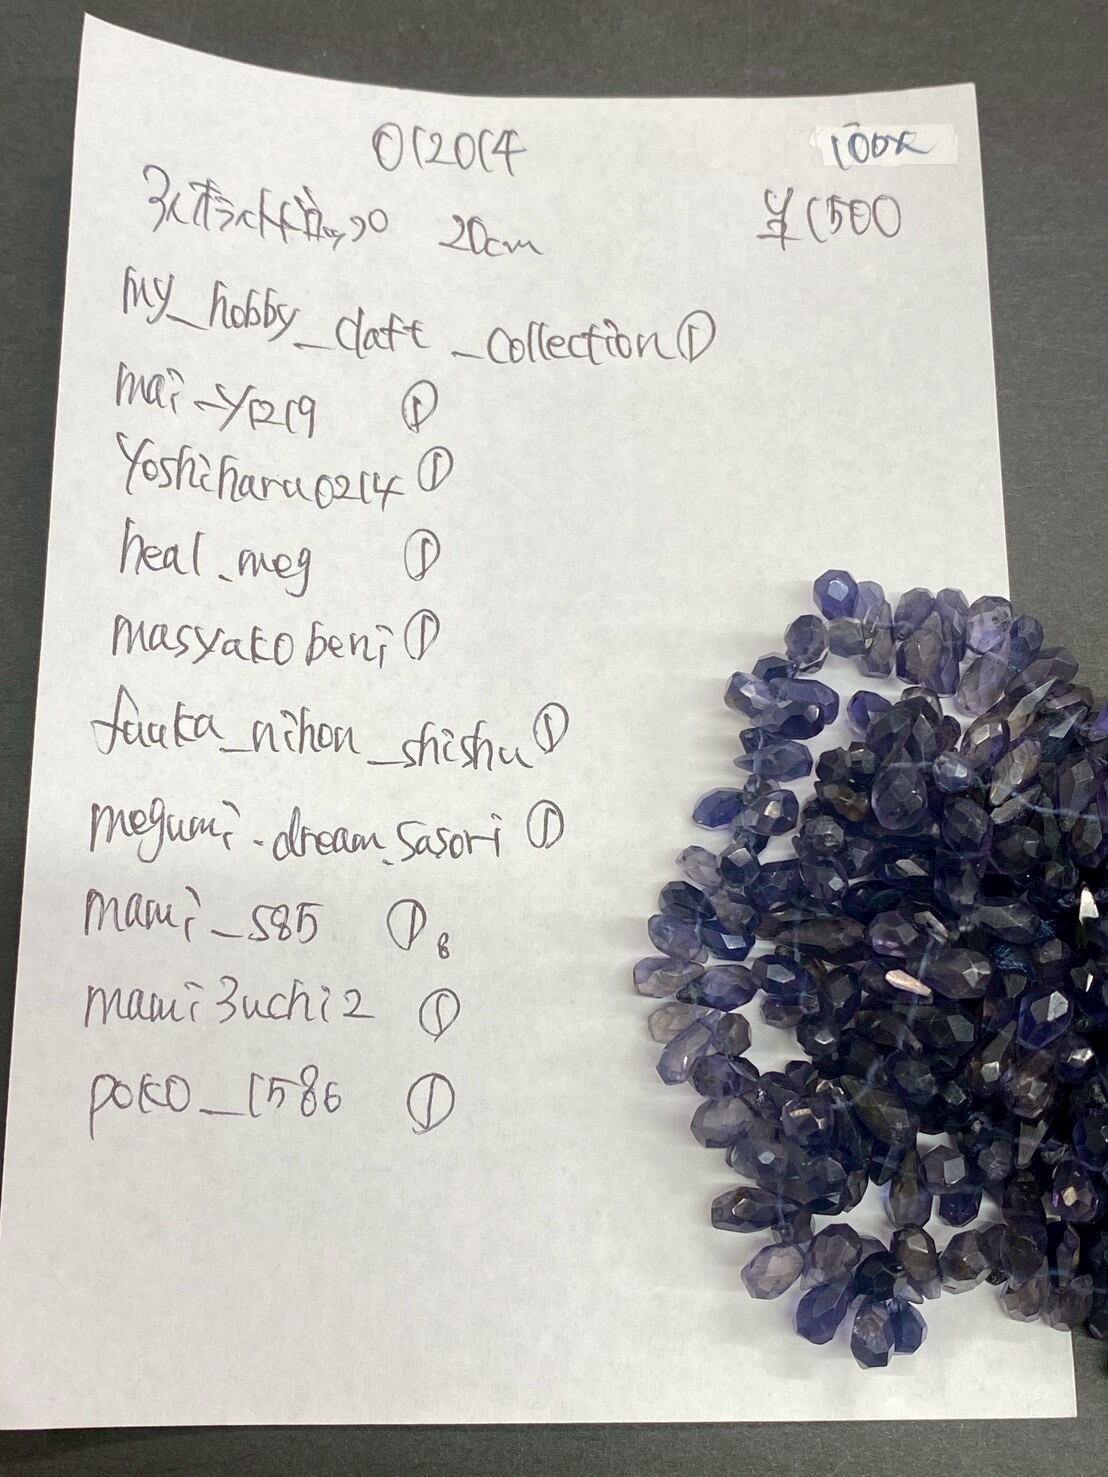 012014 100x
アイオライトドロップ 20cm ¥1500
my_hobby_claft_collection①
mai_y1219 ①
yoshiharu0214①
heal.meg ①
masyakobeni①
fuuka_nihon_shishu①
megumi.dream.sasori ①
mami_s85 ① B
mami3uchi2 ①
poko_1586 ①